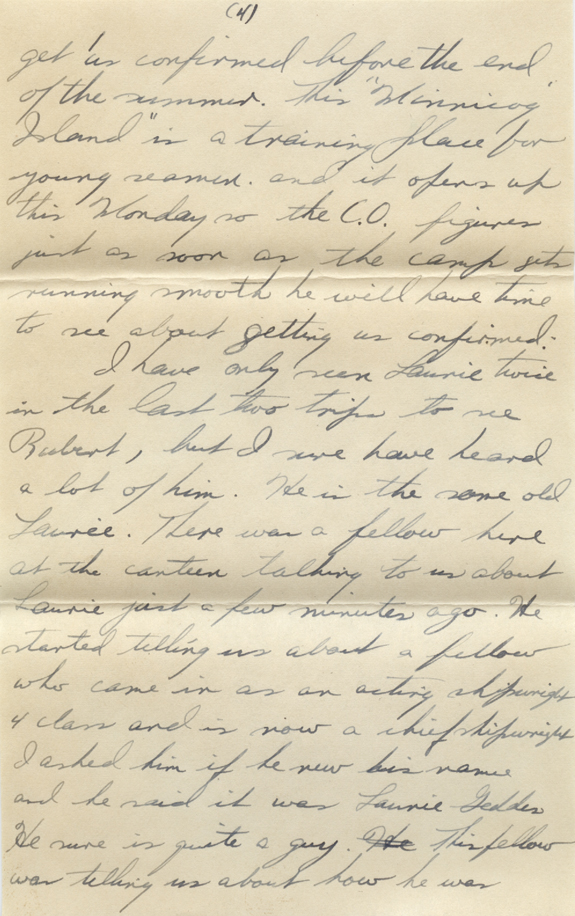 (4)
get us confirmed before the end
of the summer. This "Minnicog
Island" is a training place for
young seamen. and it opens up
this Monday so the C.O. figures
just as soon as the camp gets
running smooth he will have time
to see about getting us confirmed.
I have only seen Laurie twice
in the last two trips to see
Robert, but I sure have heard
a lot of him. He is the same old
Laurie. There was a fellow here
at the canteen talking to us about
Laurie just a few minutes ago. He
started telling us about a fellow
who came in as an acting shipwright
4 class and is now a chief shipwright
I asked him if he new his name
and he said it was Laurie Geddes
He sure is quite a guy. He This fellow
was telling us about how he was